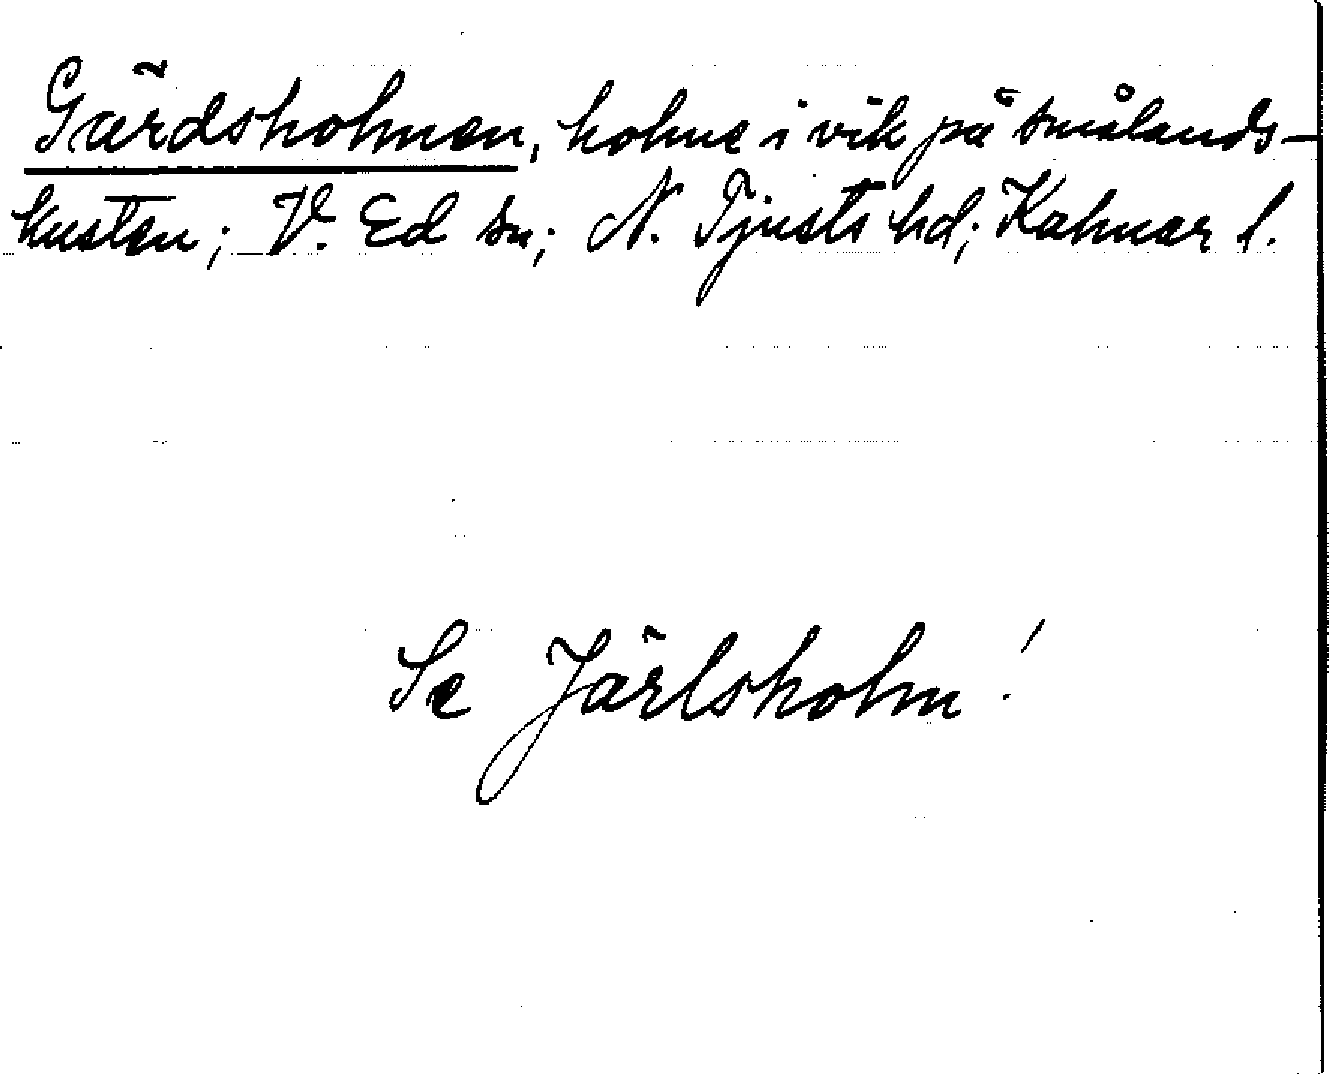 Gärdsholmen, holme i vik på smålands-
kusten; V. Ed sn; N. Tjusts hd; Kalmar l.
Se Järlsholm!